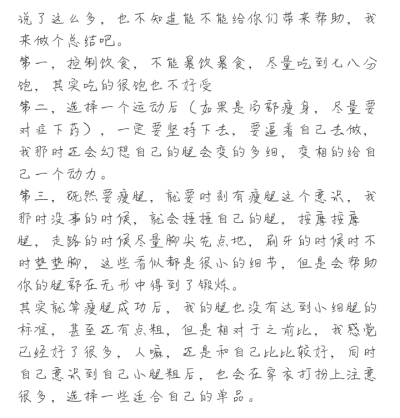 说了这么多，也不知道能不能给你们带来帮助，我
来做个总结吧。
第一，控制饮食，不能暴饮暴食，尽量吃到七八分
饱，其实吃的很饱也不好受
第二，选择一个运动后（如果是局部瘦身，尽量要
对症下药），一定要坚持下去，要逼着自己去做，
我那时还会幻想自己的腿会变的多细，变相的给自
己一个动力。
第三，既然要瘦腿，就要时刻有瘦腿这个意识，我
那时没事的时候，就会捶捶自己的腿，按摩按摩
腿，走路的时候尽量脚尖先点地，刷牙的时候时不
时垫垫脚，这些看似都是很小的细节，但是会帮助
你的腿部在无形中得到了锻炼。
其实就算瘦腿成功后，我的腿也没有达到小细腿的
标准，甚至还有点粗，但是相对于之前比，我感觉
已经好了很多，人嘛，还是和自己比比较好，同时
自己意识到自己小腿粗后，也会在穿衣打扮上注意
很多，选择一些适合自己的单品。